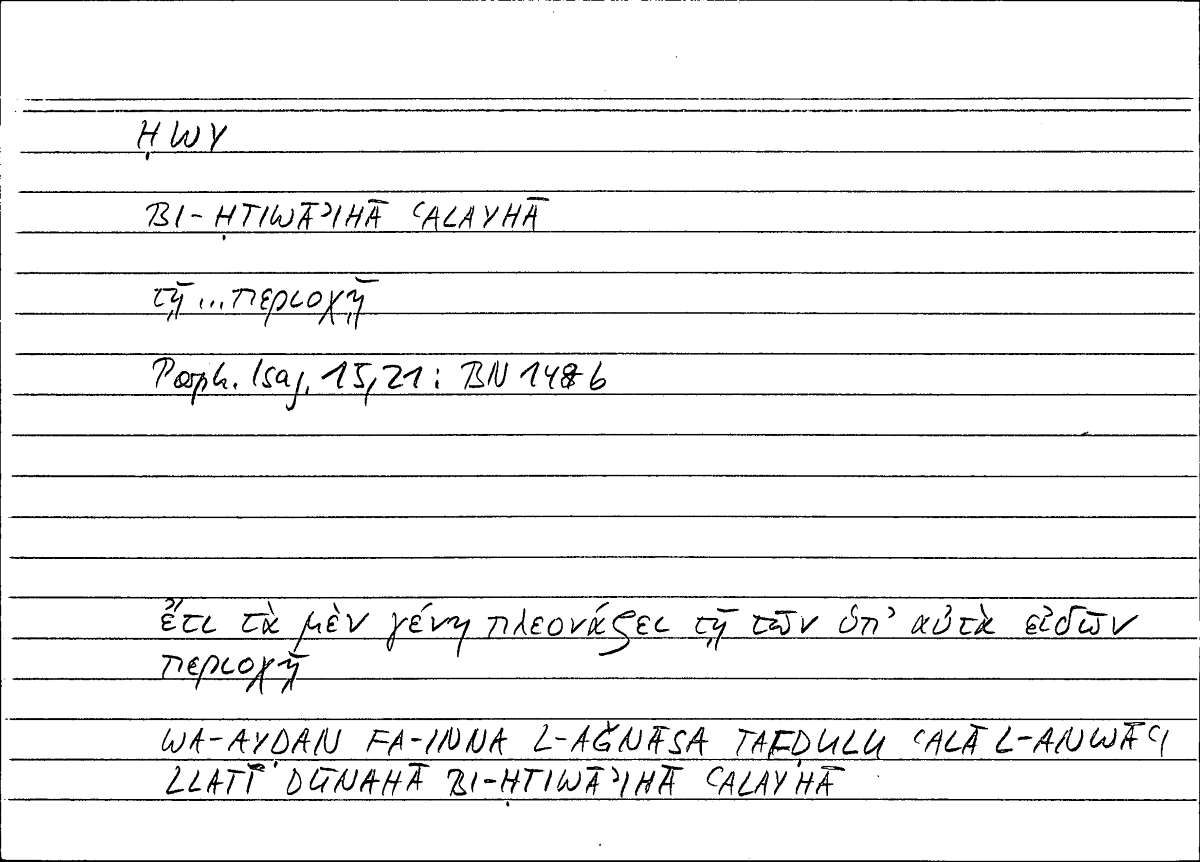 ḤWY
BI-ḤTIWĀʾIHĀ ʿALAYHĀ
τῇ ... περιοχῇ
Porph. Isag. 15,21: BN 148b
ἔτι τὰ μὲν γένη πλεονάζει τῇ τῶν ὑπ’ αὐτὰ εἰδῶν
περιοχῇ
WA-AYḌAN FA-INNA L-AǦNĀSA TAFḌULU ʿALĀ L-ANWĀʿI
LLATĪ DŪNAHĀ BI-ḤTIWĀʾIHĀ ʿALAYHĀ